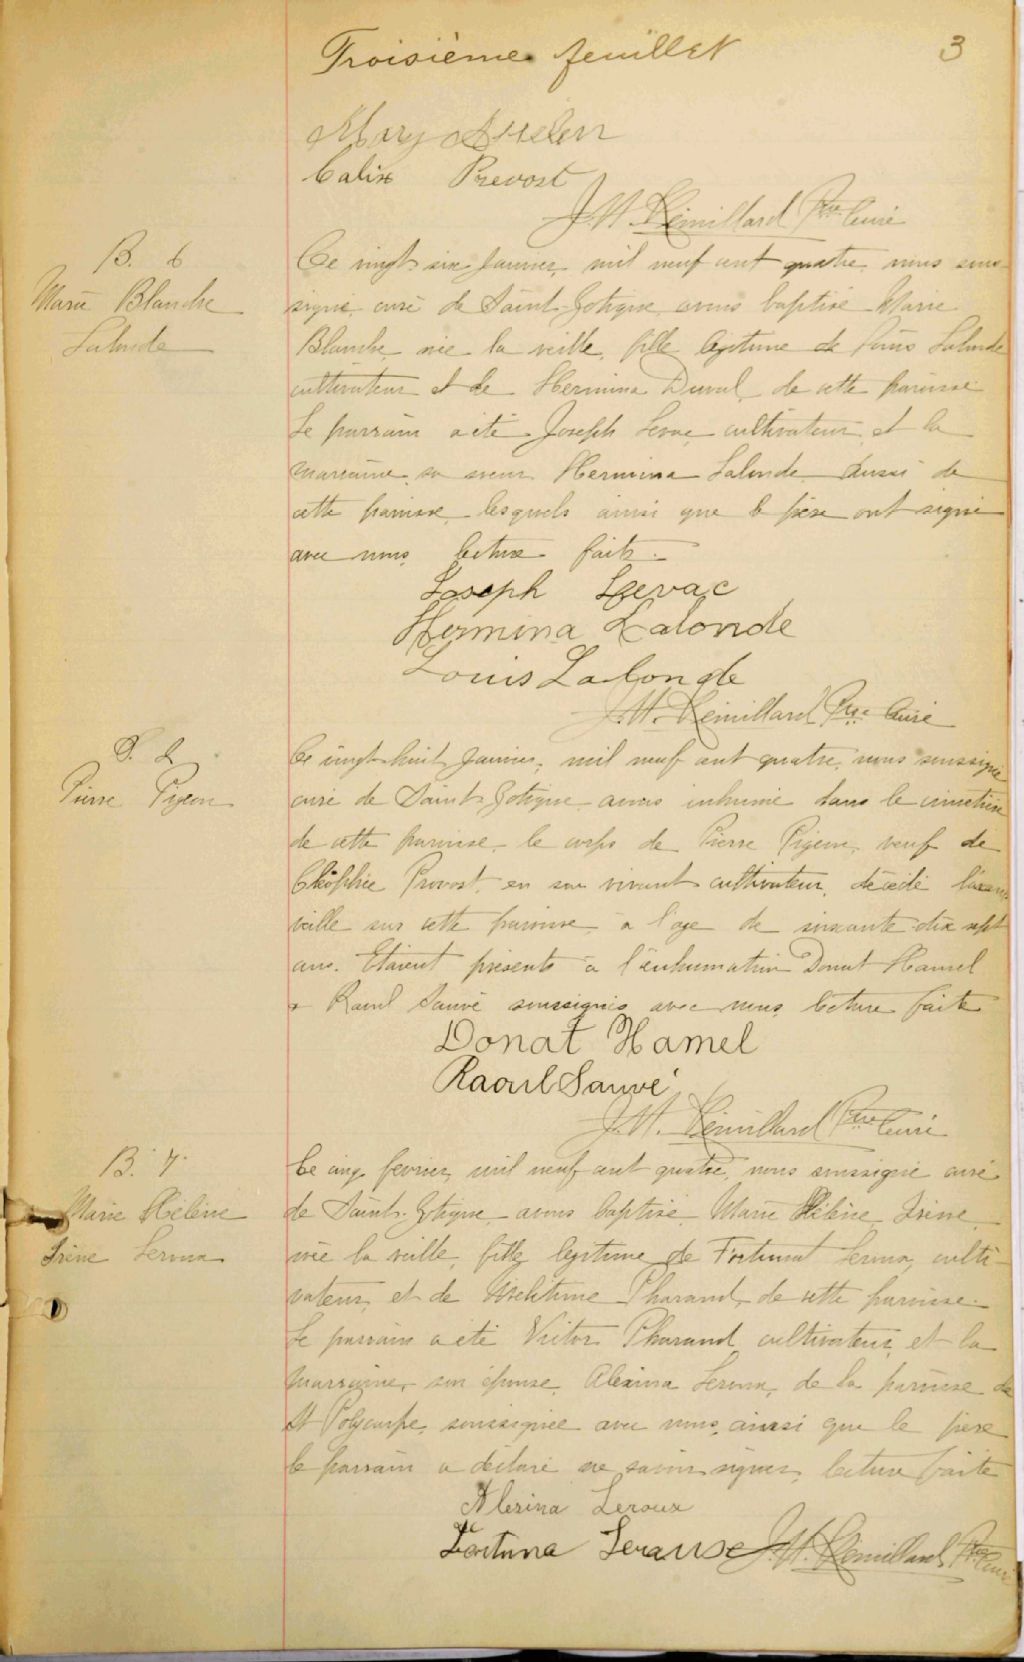 Troisième feuillet 3
Mary
Calix Prevost
J.A. Rémillard Ptre Curé
B. 6
Marie Blanche
Lalonde
Ce vingt six Janvier, mil neuf cent quatre, nous sous-
signé, curé de Saint-Zotique, avons baptisé Marie
Blanche, née la veille, fille légitime de Louis Lalonde
cultivateur et de Hermina Duval, de cette paroisse
Le parrain a été Joseph Levac, cultivateur, et la
marraine, sa soeur Hermina Lalonde aussi de
cette paroisse, lesquels ainsi que le père ont signé
avec nous, lecture faite.
Joseph Levac
Hermina Lalonde
Louis Lalonde
J.A. Rémillard Ptre Curé
S. 2
Pierre Pigeon
Ce vingt-huit Janvier, mil neuf cent quatre, nous soussigné
curé de Saint-Zotique avons inhumé dans le cimetière
de cette paroisse, le corps de Pierre Pigeon, veuf de
Cléophie Provost, en son vivant cultivateur, décédé l'avant
veille sur cette paroisse, à l'age de soixante-dix sept
ans. Etaient présents à l'inhumation Donat Hamel
& Raoul Sauvé soussignés avec nous, lecture faite
Donat Hamel
Raoul Sauvé
J.A. Rémillard Ptre Curé
B. 7.
Marie Hélène
Irène Leroux
Ce cinq février, mil neuf cent quatre, nous soussigné curé
de Saint-Zotique avons baptisé Marie Hélène Irène,
née la veille, fille légitime de Fortunat Leroux, culti-
vateur, et de Pharand, de cette paroisse.
Le parrain a été Victor Pharand, cultivateur, et la
marraine, son épouse, Alexina Leroux, de la paroisse de
St Polycarpe, soussignée avec nous, ainsi que le père
le parrain a déclaré ne savoir signer, lecture faite
Alexina Leroux
Fortuna J.A. Rémillard Ptre Curé